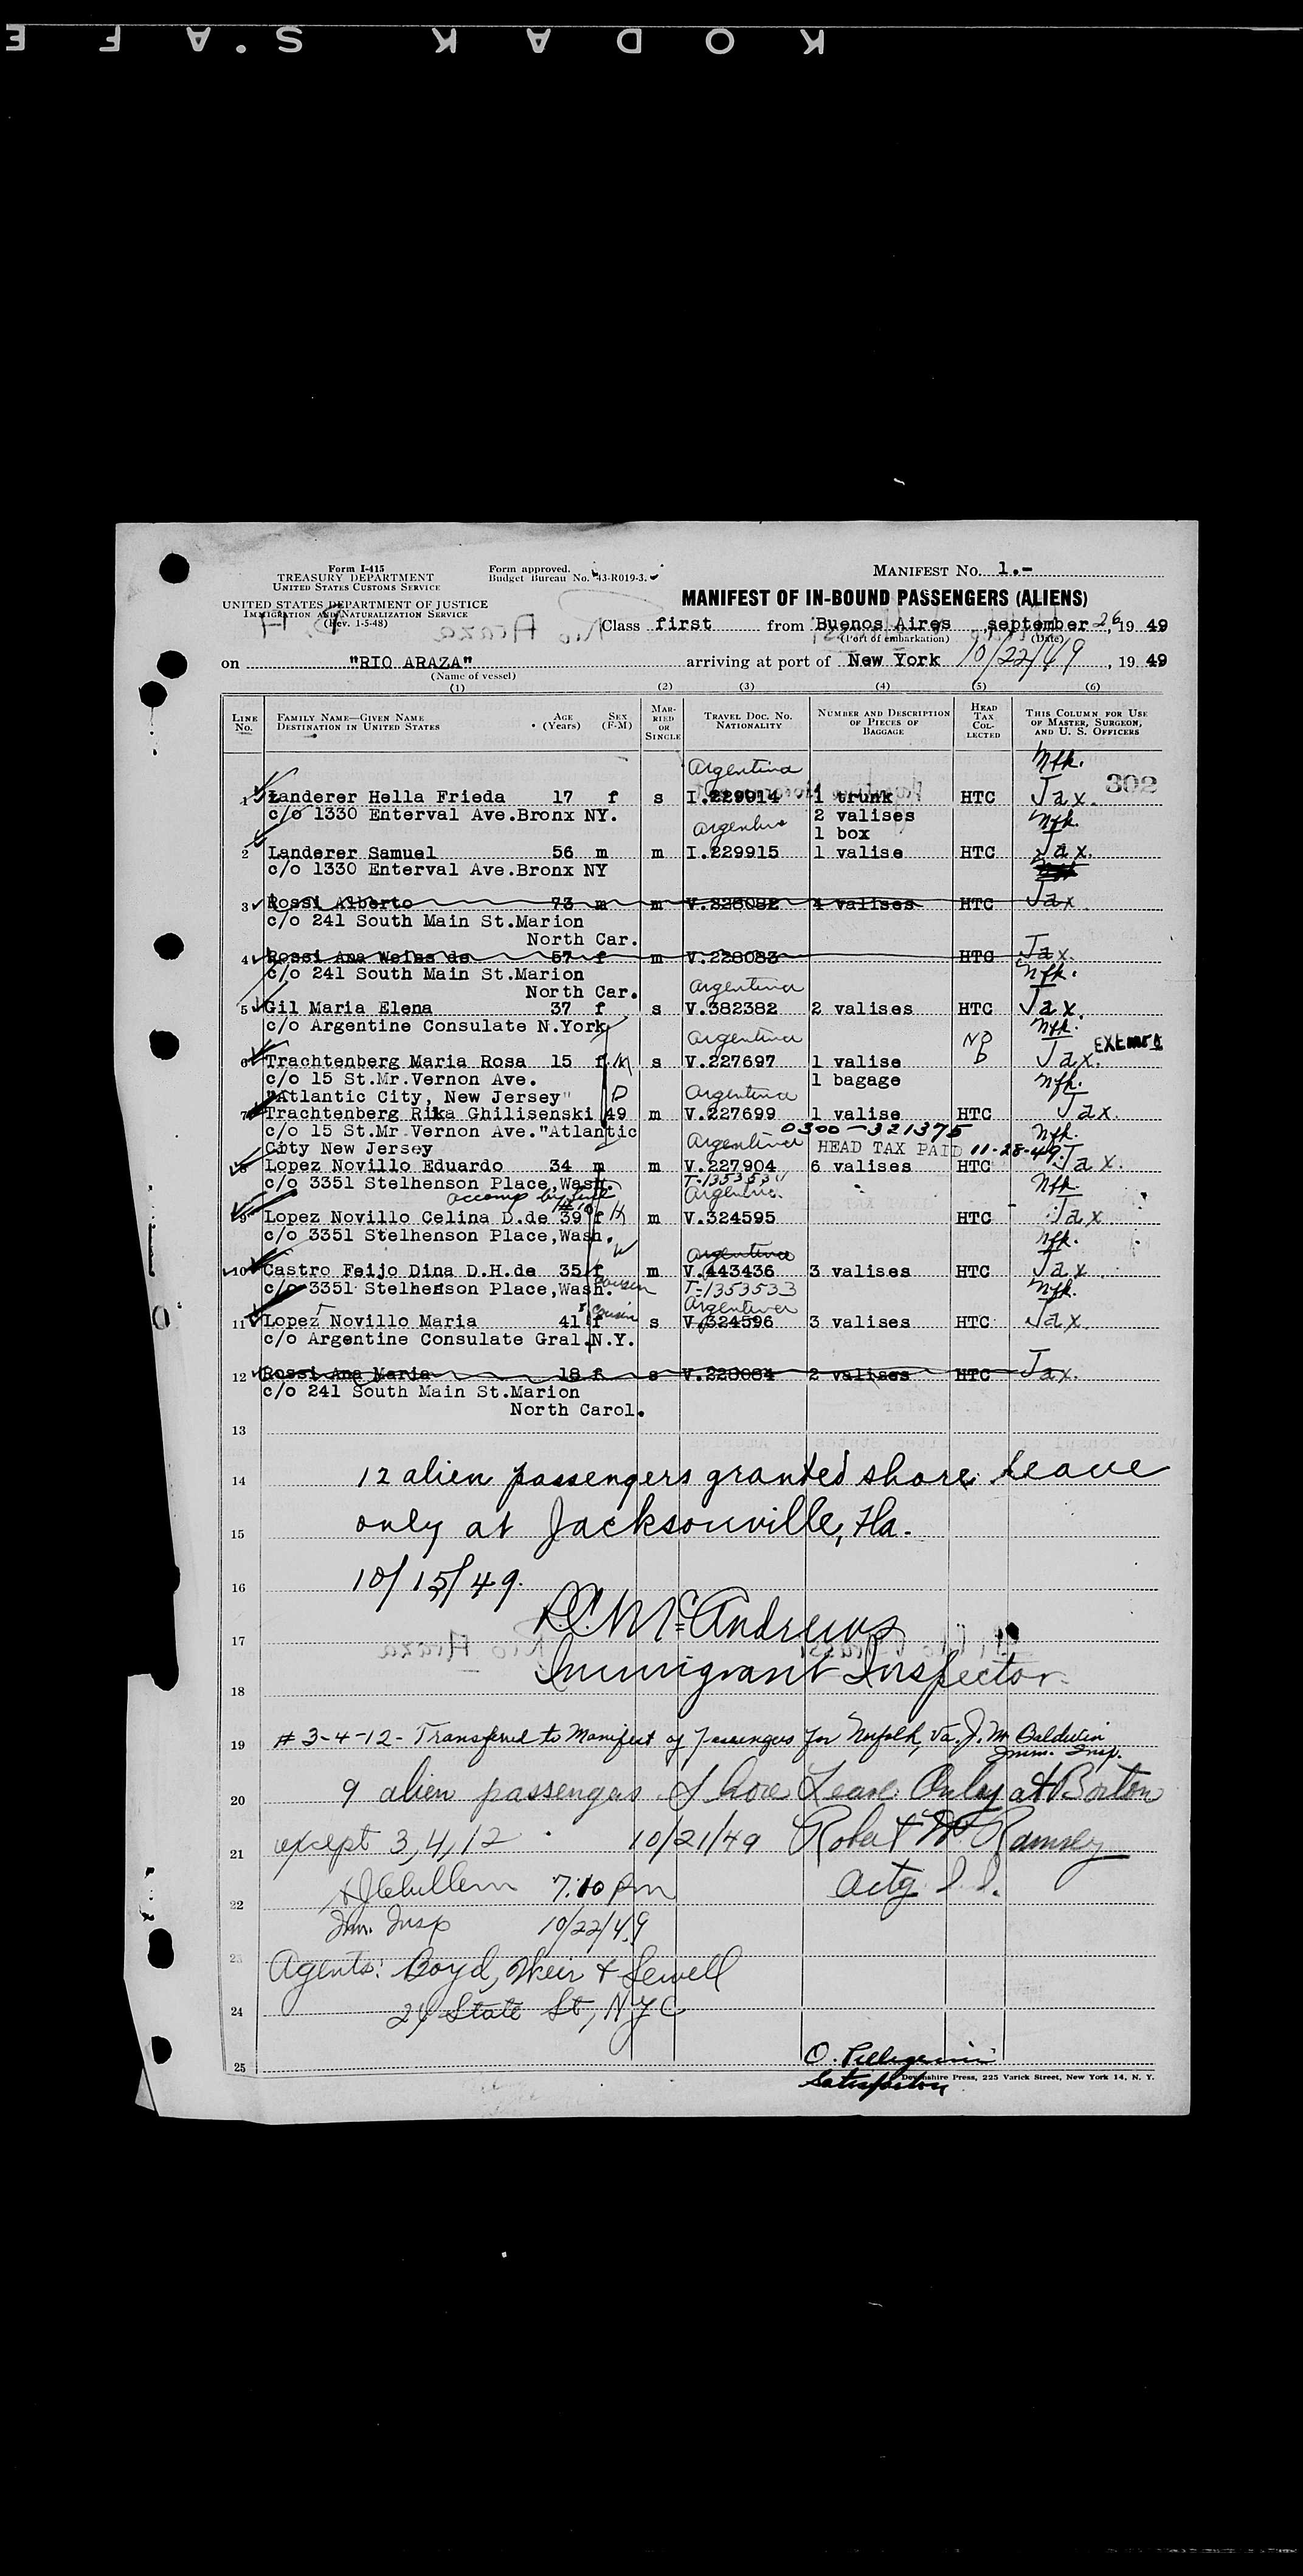 KODAK S.A.F.E
Form I-415
TREASURY DEPARTMENT
UNITED STATES CUSTOMS SERVICE
Form approved.
Budget Bureau No. 43-R019-3.
MANIFEST NO. 1.-
UNITED STATES DEPARTMENT OF JUSTICE
IMMIGRATION AND NATURALIZATION SERVICE
(Rev. 1-5-48)
MANIFEST OF IN-BOUND PASSENGERS (ALIENS)
Class first from Buenos Aires september 26, 19 49
(Port of embarkation) (Date)
on "RIO ARAZA" arriving at port of New York 10/22/49, 19 49
(Name of vessel)
(1) (2) (3) (4) (5) (6)
LINE NO. FAMILY NAME—GIVEN NAME DESTINATION IN UNITED STATES AGE (Years) SEX (F-M) MARRIED OR SINGLE TRAVEL DOC. NO. NATIONALITY NUMBER AND DESCRIPTION OF PIECES OF BAGGAGE HEAD TAX COLLECTED THIS COLUMN FOR USE OF MASTER, SURGEON, AND U. S. OFFICERS
Argentina Nfk.
302
1 Landerer Hella Frieda 17 f s I.229914 1 trunk HTC Jax.
c/o 1330 Enterval Ave.Bronx NY. 2 valises
Argentina 1 box Nfk.
2 Landerer Samuel 56 m m I.229915 1 valise HTC Jax.
c/o 1330 Enterval Ave.Bronx NY
3 Rossi Alberto 73 m m V.228082 4 valises HTC Jax
c/o 241 South Main St.Marion
North Car.
4 Rossi Ana Weiss de 57 f m V.228083 HTC Jax.
c/o 241 South Main St.Marion Nfk.
North Car. Argentina
5 Gil Maria Elena 37 f s V.382382 2 valises HTC Jax.
c/o Argentine Consulate N.York Nfk.
Argentina EXEMPT
6 Trachtenberg Maria Rosa 15 f s V.227697 1 valise Jax.
c/o 15 St.Mr.Vernon Ave. 1 bagage Nfk.
"Atlantic City, New Jersey" Argentina
7 Trachtenberg Rika Ghilisenski 49 m V.227699 1 valise HTC Jax.
c/o 15 St.Mr.Vernon Ave."Atlantic 0300-321375 Nfk.
City New Jersey Argentina HEAD TAX PAID 11-28-49.
8 Lopez Novillo Eduardo 34 m m V.227904 6 valises HTC Jax.
c/o 3351 Stelhenson Place,Wash. Nfk.
Argentina
9 Lopez Novillo Celina D.de 39 f m V.324595 HTC Jax
c/o 3351 Stelhenson Place,Wash. Nfk.
Argentina
10 Castro Feijo Dina D.H.de 35 f m V.443436 3 valises HTC Jax.
c/o 3351 Stelhenson Place,Wash. cousin T-1353533 Nfk.
cousin Argentina
11 Lopez Novillo Maria 41 f s V.324596 3 valises HTC Jax.
c/o Argentine Consulate Gral.N.Y.
12 Rossi Ana Maria 18 f s V.228084 2 valises HTC Jax.
c/o 241 South Main St.Marion
North Carol.
13
14 12 alien passengers granted shore leave
15 only at Jacksonville, Fla.
16 10/15/49.
17 McAndrews
18 Immigrant Inspector
19 # 3-4-12- Transferred to Manifest of Passengers for Norfolk, Va. J. M. Baldwin
Imm. Insp.
20 9 alien passengers Shore Leave Only at Boston
21 except 3, 4, 12 10/21/49 Robert W. Ramsey
22 7:10 pm Actg I. I.
Imm. Insp 10/22/49
23 Agents: Boyd, Weir & Sewell
24 24 State St, NYC
25 O. Pellegrini
Devonshire Press, 225 Varick Street, New York 14, N. Y.